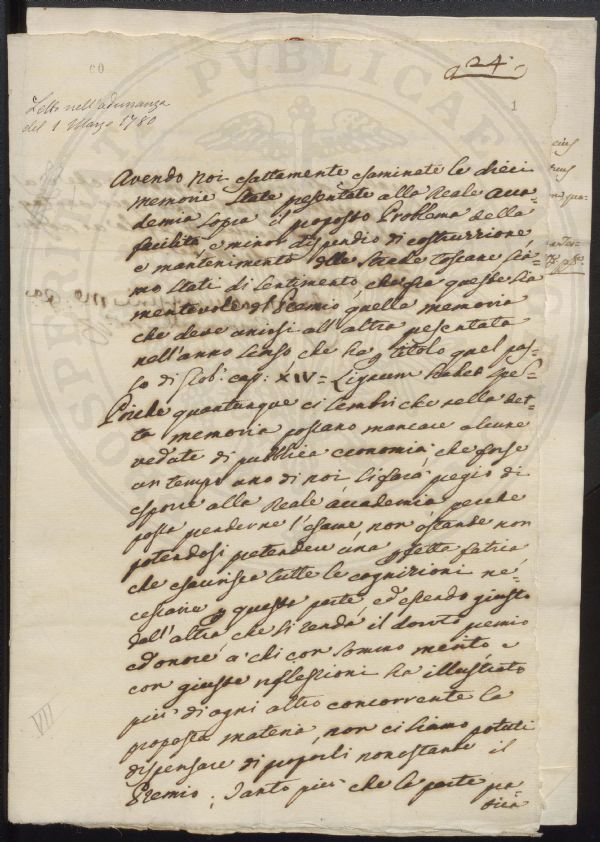 24.
1
Letto nell'adunanza
del 1 Marzo 1780
Avendo noi esattamente esaminate le dieci
memorie state presentate alla Reale Acca=
demia sopra il proposto Problema della
facilità, e minor dispendio di costruzione
e mantenimento delle strade toscane sia=
mo stati di sentimento, che fra queste sia
meritevole del Premio quella memoria
che deve unirsi all'altra presentata
nell'anno scorso che ha p titolo quel pas=
so di Giob. cap: XIV = Lignum habet spes =
Poiche quantunque ci sembri che nella det=
ta memoria possano mancare alcune
vedute di pubblica economia; che forse
un tempo uno di noi si farà pregio di
esporre alla Reale accademia perche
possa prenderne l'esame, non ostante non
potendosi pretendere una perfetta fatica
che esaurisca tutte le cognizioni ne=
cessarie p questa parte, ed essendo giusto
dall'altra che si renda il dovuto premio
ed onore a chi con sommo merito, e
con giuste riflessioni ha illustrato
più di ogni altro concorrente la
proposta materia, non ci siamo potuti
dispensare di proporli nonostante il
Premio; Tanto più che la parte pra
tica
VII